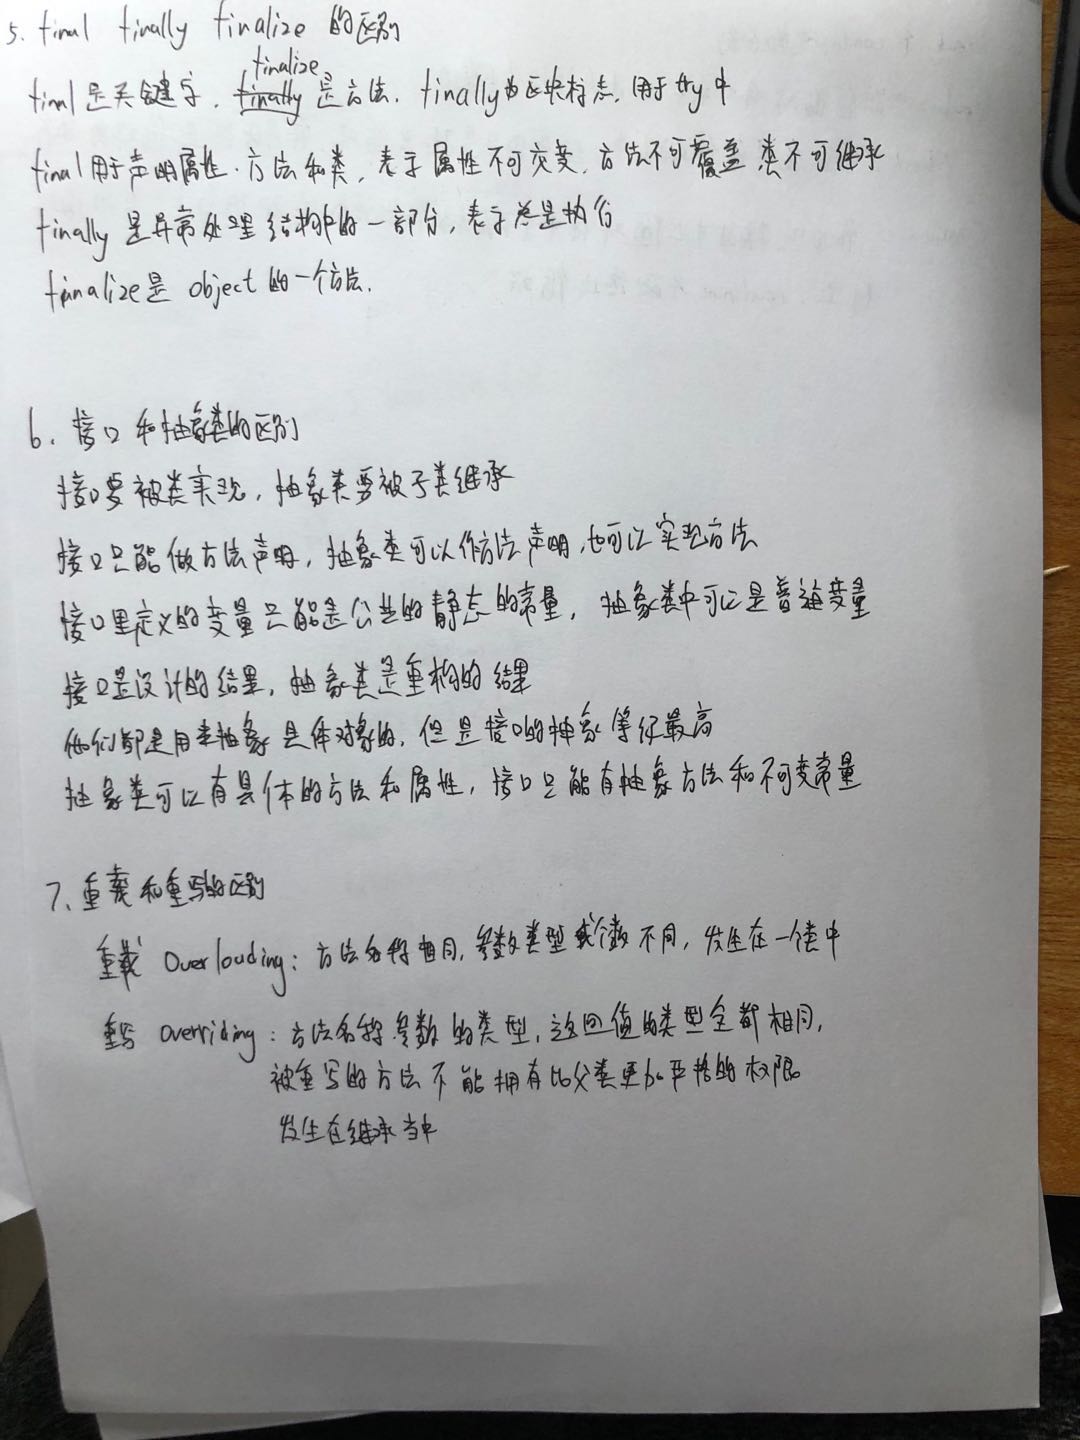 5. final finally finalize 的区别
finalize
final是关键字, finally 是方法. finally为区块标志, 用于try中
final用于声明属性.方法和类, 表示属性不可交变, 方法不可覆盖 类不可继承
finally 是异常处理结构中的一部分, 表示总是执行
finalize是 object 的一个方法.
6. 接口和抽象类的区别
接口要被类实现, 抽象类要被子类继承
接口只能做方法声明, 抽象类可以作方法声明,也可以实现方法
接口里定义的变量只能是公共的静态的常量, 抽象类中可以是普通变量
接口是设计的结果, 抽象类是重构的结果
他们都是用来抽象具体对象的, 但是接口的抽象等级最高
抽象类可以有具体的方法和属性, 接口只能有抽象方法和不可变常量
7、重载和重写的区别
重载 Overloading: 方法名称相同, 参数类型或个数不同, 发生在一个类中
重写 overriding: 方法名称.参数的类型, 返回值的类型全都相同,
被重写的方法不能拥有比父类更加严格的权限
发生在继承当中